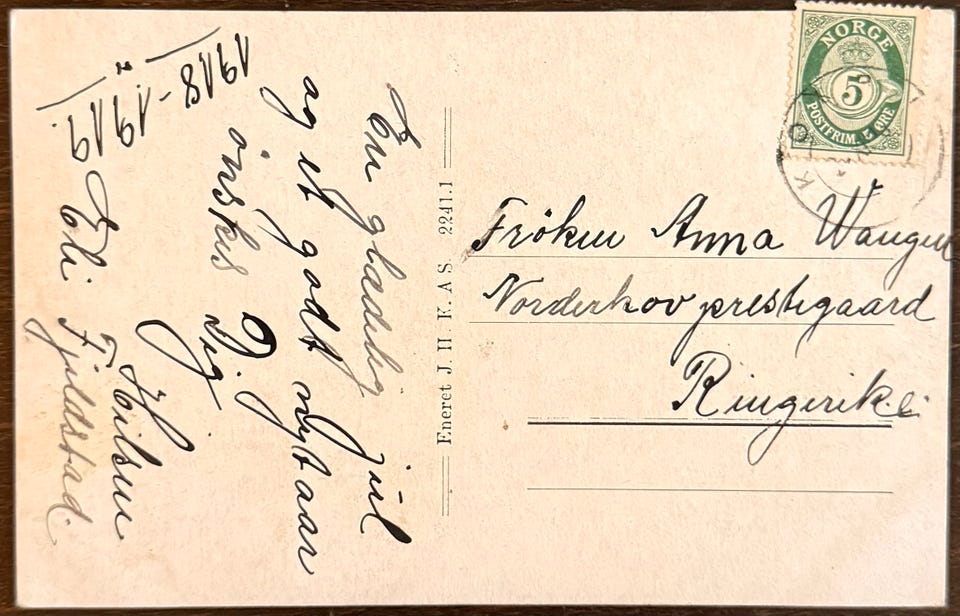 En glædelig Jul
og et godt Nytaar
önskes Dig
1918-1919.
Hilsen
Eli Fjeldstad.
Eneret J. H. K. A S. 2241.1
NORGE
5
POSTFRIM. 5 ØRE
Fröken Anna Wangen
Norderhov prestegaard
Ringerike